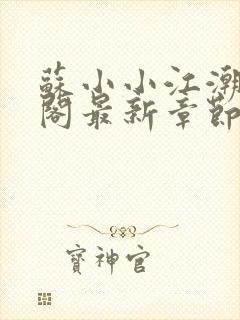 蘇小小江潮
閣最新章節
寶神官